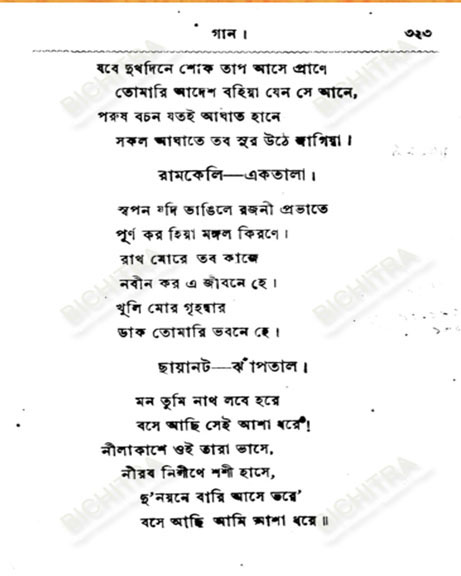 গান।
৩২৩
যবে দুখদিনে শোক তাপ আসে প্রাণে
তোমারি আদেশ বহিয়া যেন সে আনে,
পরুষ বচন যতই আঘাত হানে
সকল আঘাতে তব সুর উঠে জাগিয়া।
রামকেলি—একতালা।
স্বপন যদি ভাঙিলে রজনী প্রভাতে
পূর্ণ কর হিয়া মঙ্গল কিরণে।
রাখ মোরে তব কাজে
নবীন কর এ জীবনে হে।
খুলি মোর গৃহদ্বার
ডাক তোমারি ভবনে হে।
ছায়ানট—ঝাঁপতাল।
মন তুমি নাথ লবে হরে
বসে আছি সেই আশা ধরে!
নীলাকাশে ওই তারা ভাসে,
নীরব নিশীথে শশী হাসে,
দু'নয়নে বারি আসে ভরে'
বসে আছি আমি আশা ধরে॥
BICHITRA
BICHITRA
BICHITRA
BICHITRA
BICHITRA
BICHITRA